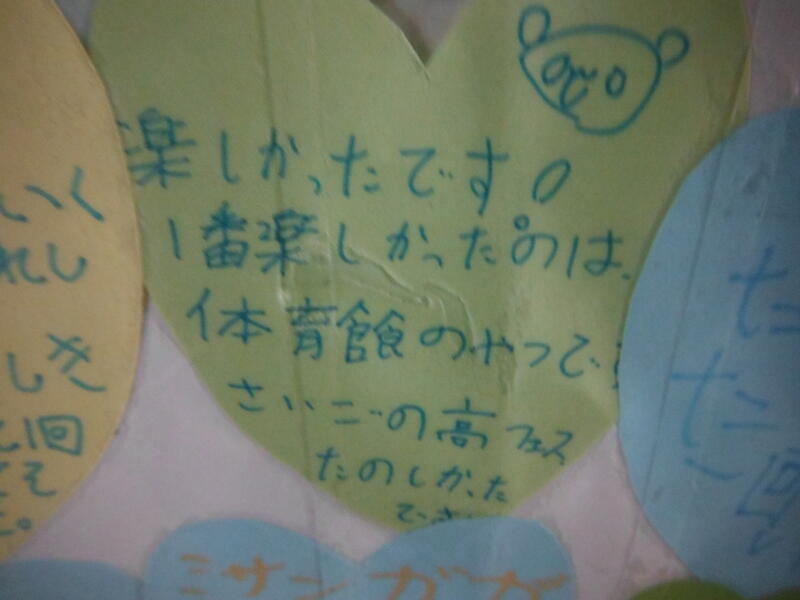 楽しかったです！
1番楽しかったのは、
体育館のやつです
さいごの高フェス
たのしかった
です
いく
れし
しき
回
そ
た
た
回
ミサンガが